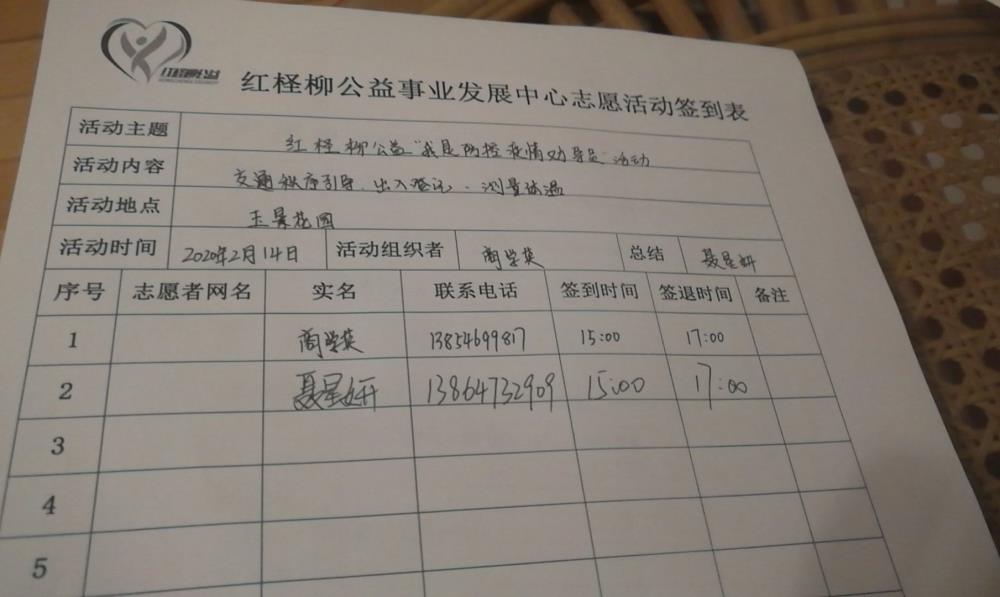 红柽柳公益
红柽柳公益事业发展中心志愿活动签到表
活动主题 红柽柳公益“我是防控疫情劝导员”活动
活动内容 交通秩序引导、出入登记、测量体温
活动地点 玉景花园
活动时间 2020年2月14日 活动组织者 商学英 总结 聂星妍
序号 志愿者网名 实名 联系电话 签到时间 签退时间 备注
1 商学英 13854699817 15:00 17:00
2 聂星妍 13864732909 15:00 17:00
3
4
5